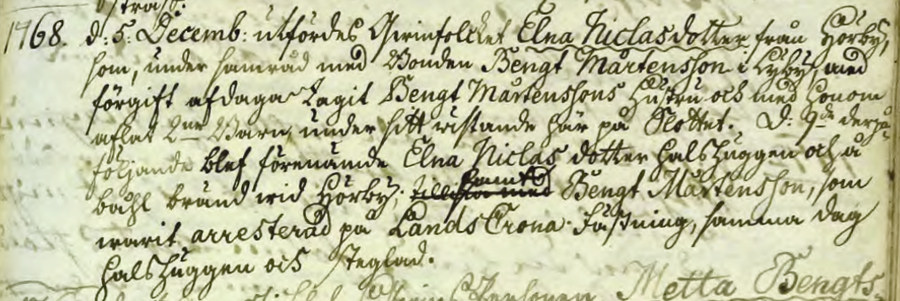 straff.
1768. d: 5: Decemb: utfördes Qwinfolcket Elna Niclasdotter från Hörby,
som, under samråd med Bonden Bengt Mårtensson i Lyby, med
förgift afdaga tagit Bengt Mårtenssons Hustru och med honom
aflat 2ne Barn, under sitt wistande här på Slottet. D: 9de derpå
följande blef förenämde Elna Niclas dotter halshuggen och å
båhl bränd wid Hörby; samt Bengt Mårtensson, som
warit arresterad på Lands Crona Fästning, samma dag
halshuggen och Steglad.
Metta Bengts